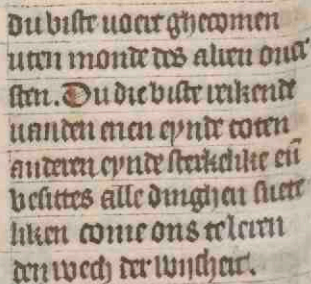 du biste uoert ghecomen
uten monde des alren ouer
sten. Du die biste reikende
uanden enen eynde toten
anderen eynde sterkelike eñ
besittes alle dinghen suete
liken come ons te leren
den wech der wijsheit.